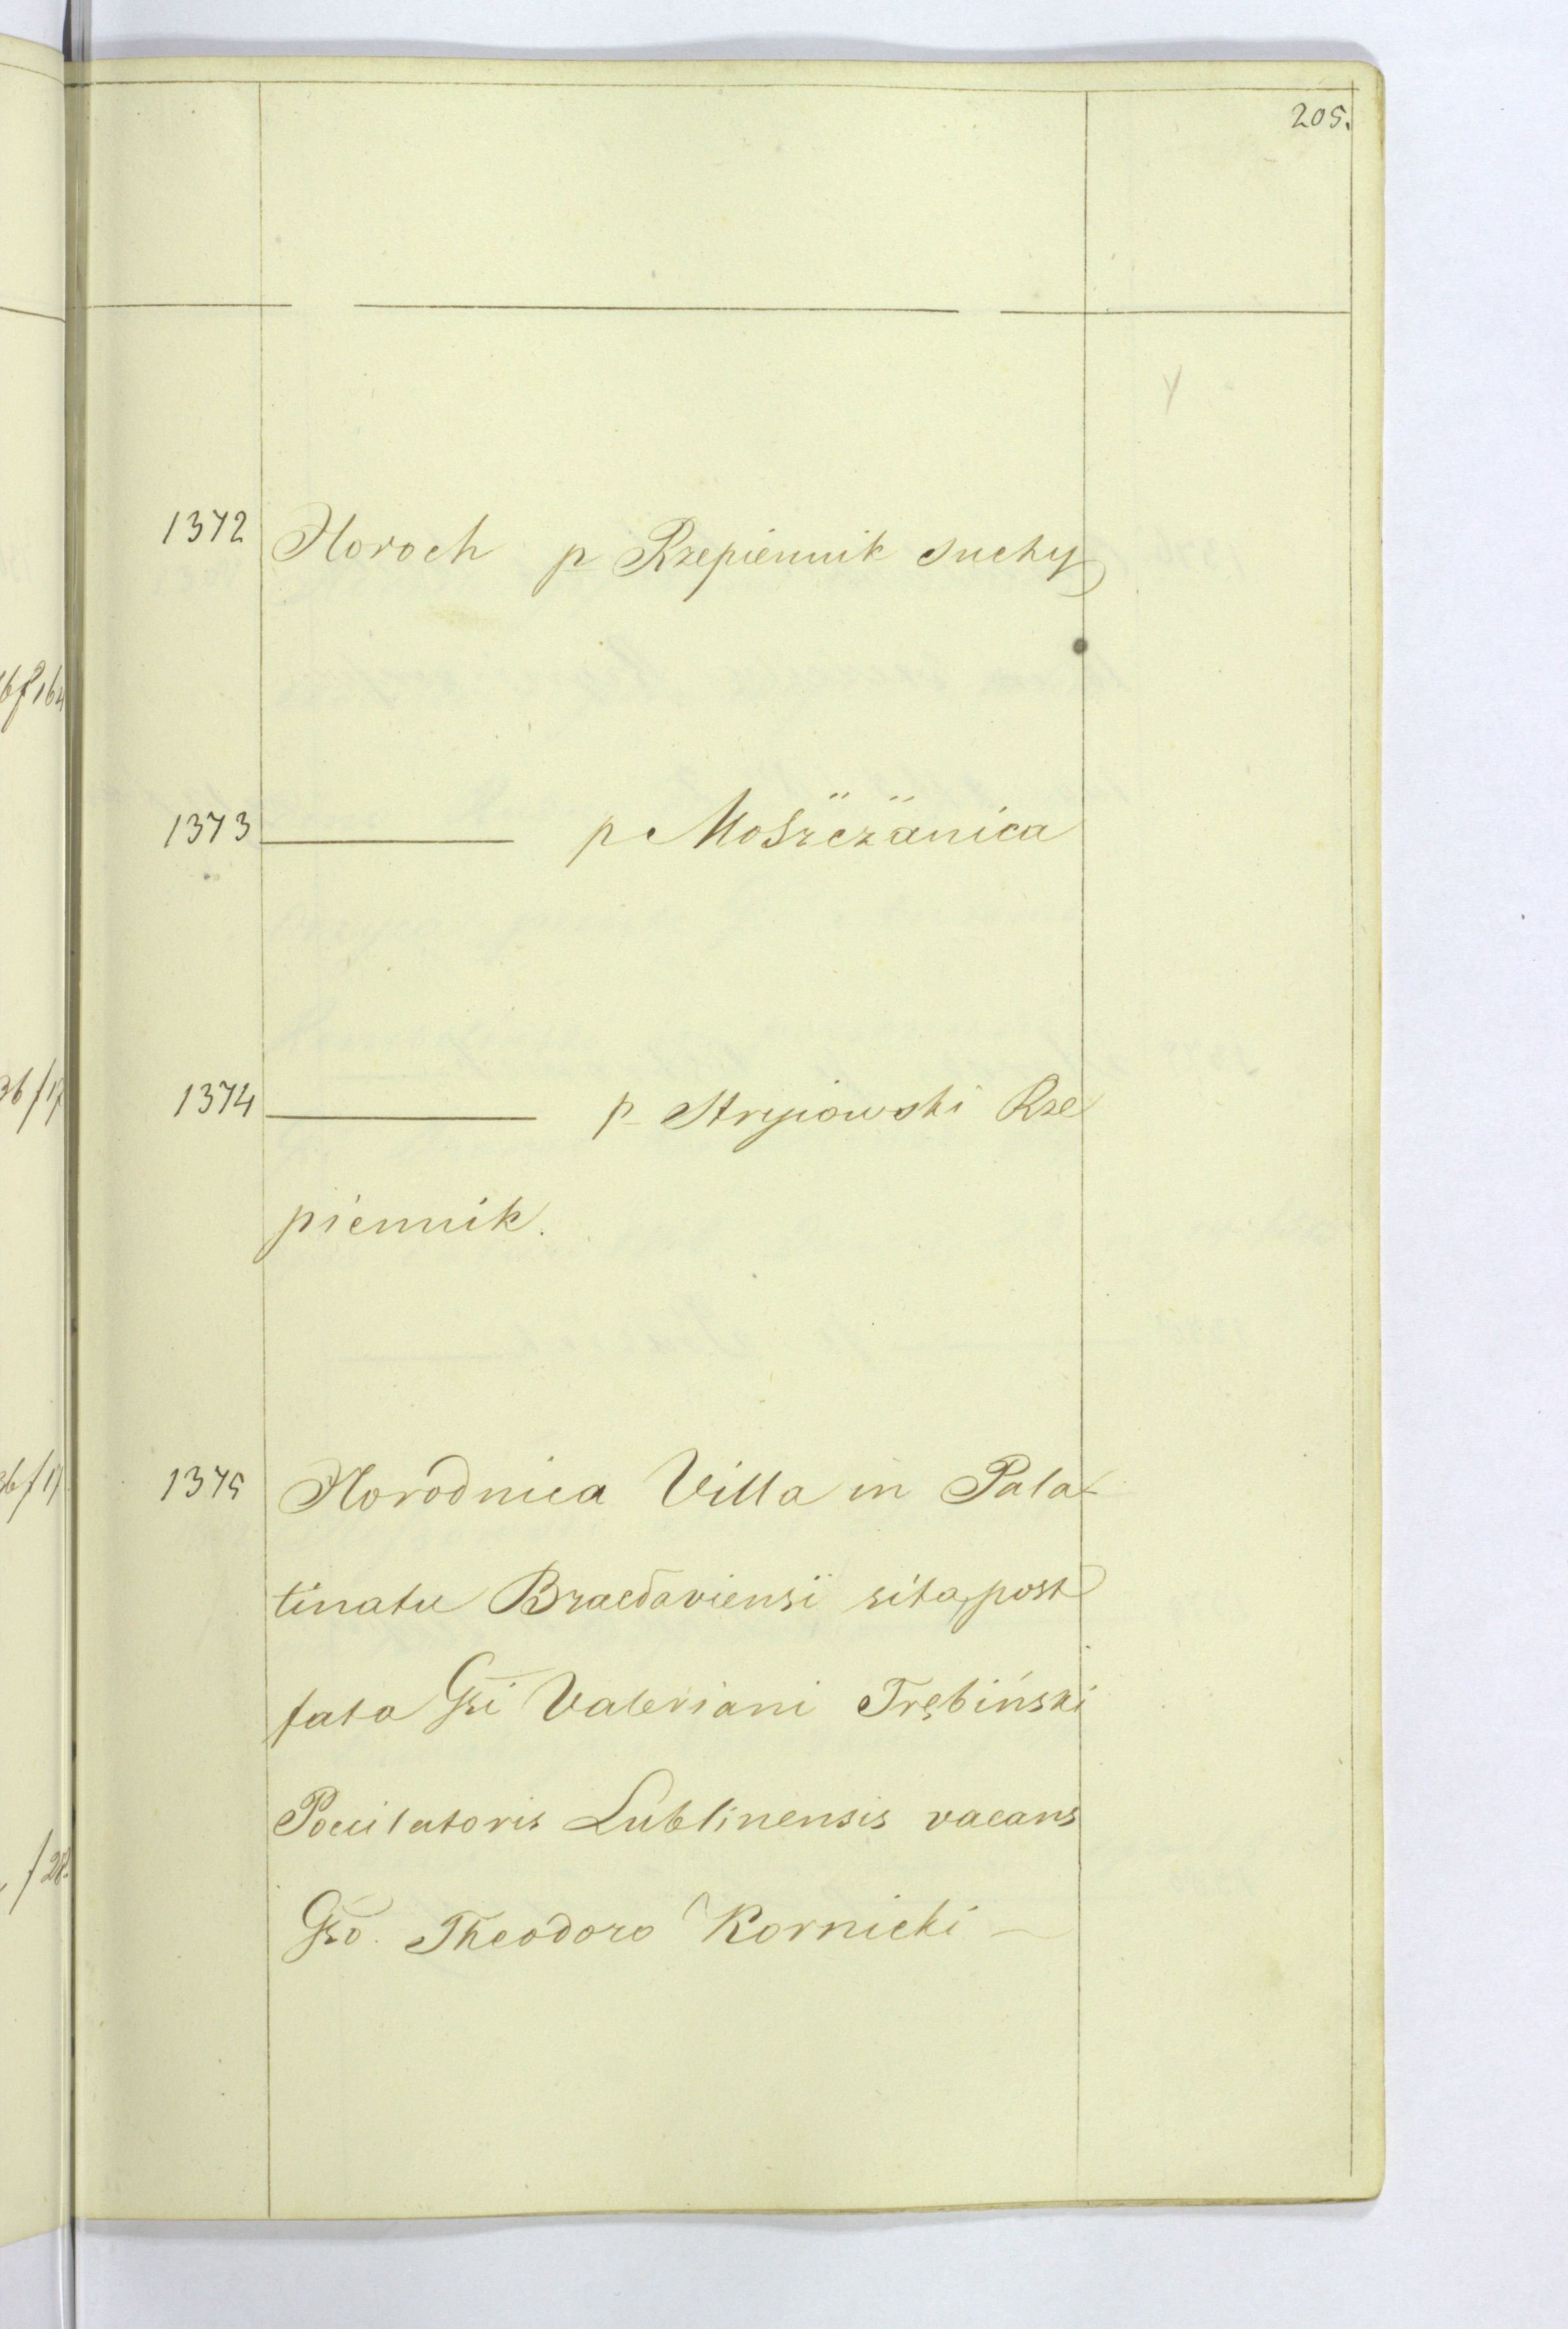 205.
1372 Horoch p Rzepiennik suchy
1373 ——— p Moszczanica
1374 ——— p Stryiowski Rze
piennik.
1375 Horodnica Villa in Pala
tinatu Bracdaviensi sita, post
fata Gsi Valeriani Trębiński
Pocilatoris Lublinensis vacans
Gso. Theodoro Kornicki —